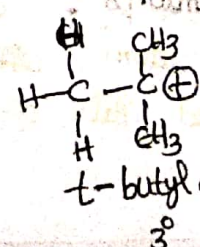 H CH3
H-C-C⊕
H CH3
t-butyl
3°